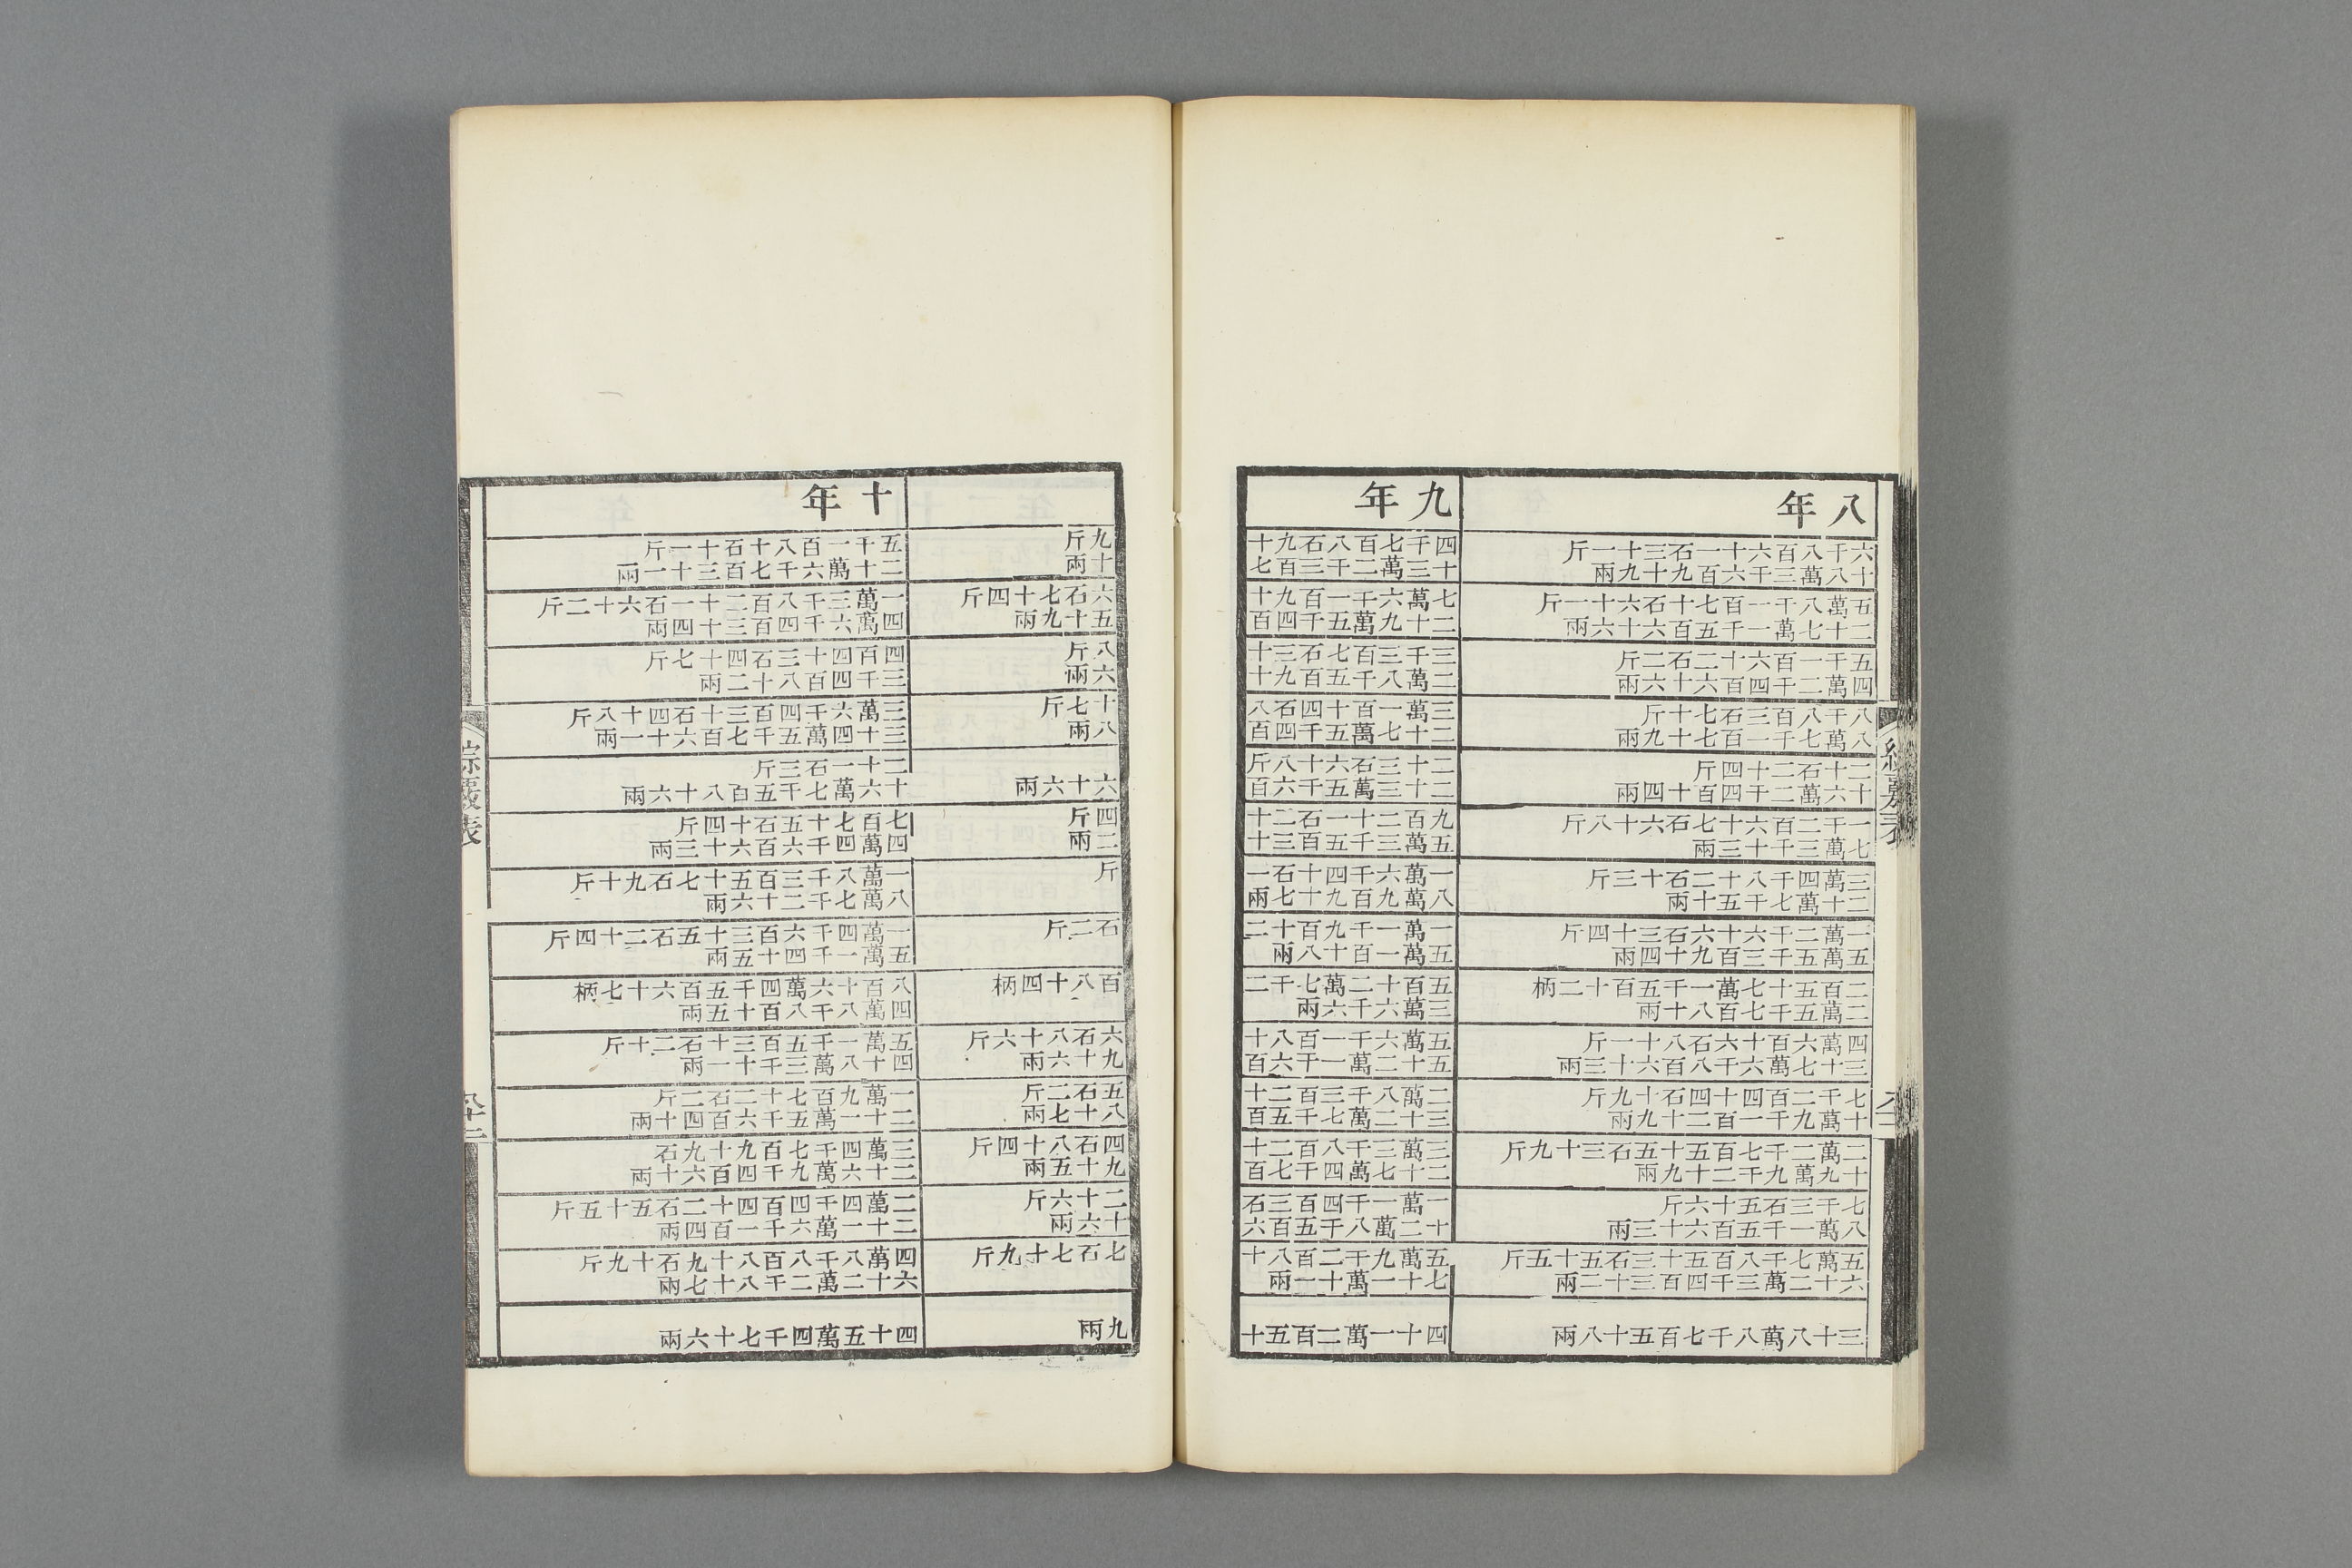 八年
六千八百六十一石三十一斤
十八萬三千六百九十九兩
五萬八千一百七十石六十一斤
二十七萬一千五百六十六兩
五千一百六十二石二斤
四萬二千四百六十六兩
八千八百三石七十斤
八萬七千一百七十九兩
二十石二十四斤
十六萬二千四百十四兩
一千二百六十七石六十八斤
七萬三千十三兩
三萬四千八十二石十三斤
二十萬七千五十兩
一萬二千六十六石三十四斤
五萬五千三百九十四兩
二百五十七萬一千五百十二柄
二萬五千七百八十兩
四萬六百十六石八十一斤
三十七萬六千八百六十三兩
七千二百四十四石十九斤
十萬九千一百二十九兩
二萬二千七百五十五石三十九斤
十九萬九千二十九兩
七千三石五十六斤
八萬一千五百六十三兩
五萬七千八百五十三石五十五斤
六十二萬三千四百三十二兩
三十八萬八千七百五十八兩
九年
四千七百八石九十
十三萬二千三百七
七萬六千一百九十
二十九萬五千四百
三千三百七石三十
二萬八千五百九十
三萬一百十四石八
二十七萬五千四百
二十三石六十八斤
二十三萬五千六百
九百二十一石二十
五萬三千五百三十
一萬六千四十石一
八萬九百九十七兩
一萬一千九百十二
五萬一百十八兩
五百十二萬七千二
三萬六千六兩
五萬六千一百八十
五十二萬一千六百
二萬八千三百二十
三十二萬七千五百
三萬三千八百二十
二十七萬四千七百
一萬一千四百三石
十二萬八千五百六
五萬九千二百八十
七十一萬十一兩
四十一萬二百五十
九斤
十兩
六石七十四斤
五十九兩
八斤
六兩
十七斤
八兩
六十六兩
四斤
二兩
斤
石二斤
百八十四柄
六石八十六斤
九十六兩
五石二斤
八十七兩
四石八十四斤
九十五兩
二十六斤
十六兩
七石七十九斤
九兩
十年
五千一百八十石十一斤
二十萬六千七百三十一兩
一萬三千八百二十一石六十二斤
四萬六千四百三十四兩
四百四十三石四十七斤
三千四百八十二兩
三萬六千四百三十石四十八斤
三十四萬五千七百六十一兩
二十一石三斤
十六萬七千五百八十六兩
七百七十五石十四斤
四萬四千六百六十三兩
一萬八千三百五十七石九十斤
八萬七千二十六兩
一萬四千六百三十五石二十四斤
五萬一千四十五兩
八百十六萬四千五百六十七柄
四萬八千八百十五兩
五萬一千五百三十石二十斤
四十八萬三千十一兩
一萬九百七十二石二斤
二十一萬五千六百四十兩
三萬四千七百九十九石
二十六萬九千四百六十兩
二萬四千四百四十二石五十五斤
二十一萬六千一百四兩
四萬八千八百八十九石十九斤
六十二萬二千八十七兩
四十五萬四千七十六兩